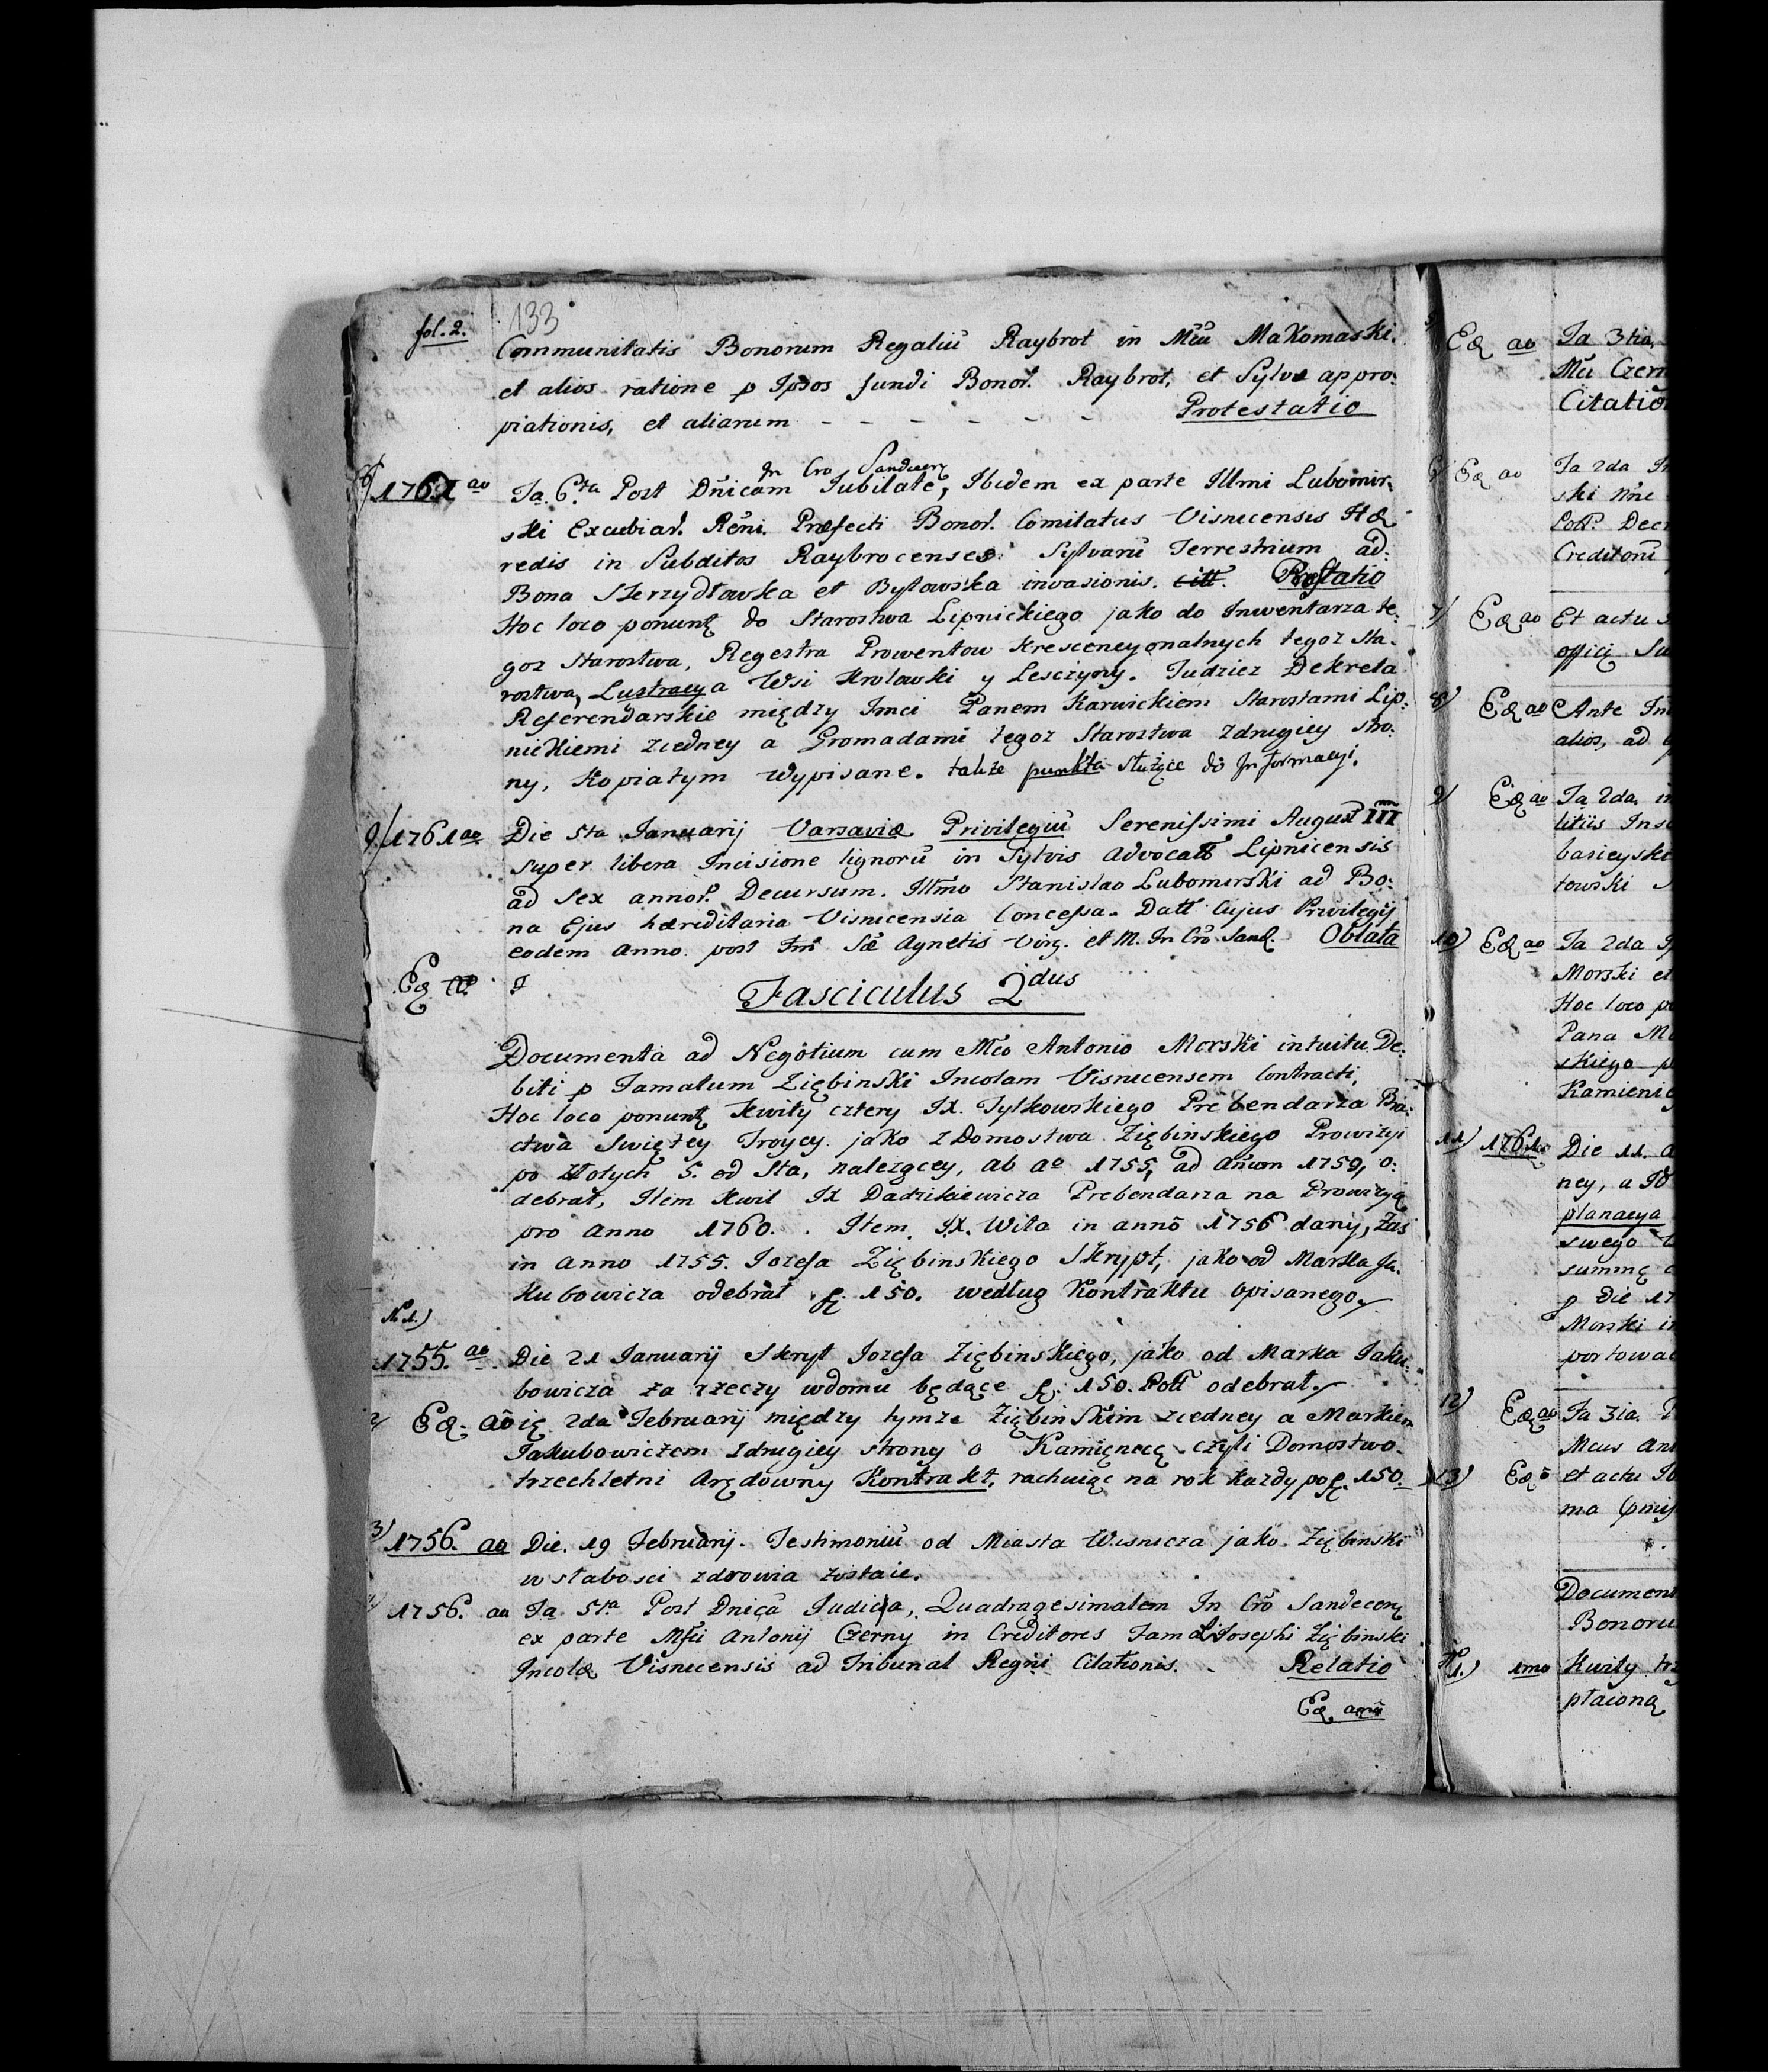 fol. 2. 133
Communitatis Bonorum Regaliũ Raybrot in Mũũ Makomaski.
et alios ratione p Ipsos fundi Bonor. Raybrot, et Sylvæ appro:
piationis, et aliarum - - - - - - Protestatio
In Cro Sandecen
1761 ao Ia 6ta Post Dñicam Iubilate, Ibidem ex parte Illmi Lubomir:
ski Excubiar. Reñi. Præfecti Bonor. Comitatus Visnicensis Hæ
redis in Subditos Raybrocenses. Sylvarũ Terrestrium ad:
Bona Skrzydłowka et Bytowska invasionis. citt. Prottatio
Hoc loco ponuntę do Starostwa Lipnickiego jako do Inwentarza te:
goz Starostwa, Regestra Prowentow Krescencyonalnych tegoz Sta-
rostwa, Lustracya Wsi Krolowki y Lesczyny. Tudziez Dekreta
Referendarskie między Imci Panem Karwickiem Starostami Lip:
nickiemi ziedney a Gromadami tegoz Starostwa zdrugiey stro:
ny, Kopiatym Wypisane. takze punkta służące do Informacyi.
9/ 1761 ao Die 5ta Ianuarij Varsaviæ Privilegiũ Serenissimi August III
super libera Incisione lignorũ in Sylvis Advocatt Lipnicensis
ad Sex annor. Decursum. Illmo Stanislao Lubomirski ad Bo:
na Ejus hæreditaria Visnicensia Concessa. Datt Cujus Privilegij
eodem anno. post Fm Sæ Agnetis Virg. et M. In Cro Sand. Oblata
Eæ
Fasciculus 2dus
Documenta ad Negotium cum Mco Antonio Morski intuitu De:
biti p Famatum Ziębinski Incolam Visnicensem Contracti,
Hoc loco ponuntę Kwity cztery IX. Tylkowskiego Prebendarza Bra:
ctwa Swiętey Troycy jako z Domostwa Ziębinskiego Prowizyi
po złotych 5. od Sta, nalezącey, ab ao 1755, ad añum 1759, o:
debrał, Item Kwit IX Dadzikiewicza Prebendarza na Prowizyą
pro anno 1760. Item. IX. Wita in annõ 1756 dany, Zaś
in anno 1755. Iozefa Ziębinskiego Skrypt, jako od Marka Ja.
kubowicza odebrał f. 150. według Kontraktu opisanego.
N 1.)
1755. ao Die 21 Ianuarij Skryt Iozefa Ziębinskiego, jako od Marka Iaku:
bowicza za rzeczy wdomu będące f. 150. Poll odebrał.
2/ Eæ. aõ ię 2da Februarij między tymze Ziębinskim ziedney a Markiem
Iakubowiczem zdrugiey strony o Kamięnecę czyli Domostwo
trzechletni Arędowny Kontrakt, rachuiąc na rok kazdy po f. 150
3/ 1756. ao Die. 19 Februarij. Testimoniũ od Miasta Wisnicza jako Ziębinski
w słabosci zdrowia zostaie.
1756. ao Ia 5ta Post Dnicã Iudica, Quadragesimalem In Crõ Sandecen
ex parte Mfci Antonij Czerny in Creditores Famati Iosephi Ziębinski
Incolæ Visnicensis ad Tribunal Regni Citationis. Relatio
Eæ anñ
Eæ ao Ia 3tia,
Mci Czern
Citatio
6/ Eæ ao Ia 2da In
ski Mñc
Poll. Decr
Creditorũ
7/ Eæ ao Et actu
officij Su
8/ Eæ ao Ante
alios, ad
9/ Eæ ao Ia 2da, in
litiis
towski
10) Eæ ao Ia 2da
Morski et
Hoc loco po
Pana Mo
skiego
Kamienic
11) 1761 Die 11.
ney, a
planacya
swego
summę
Die 17
Morski in
portowac
12) Eæ ao Ia 3ia.
Mcus Ant
13) Eæ et actu
ma
Document
Bonoru
N 1.) 1mo Kwity
płaconą